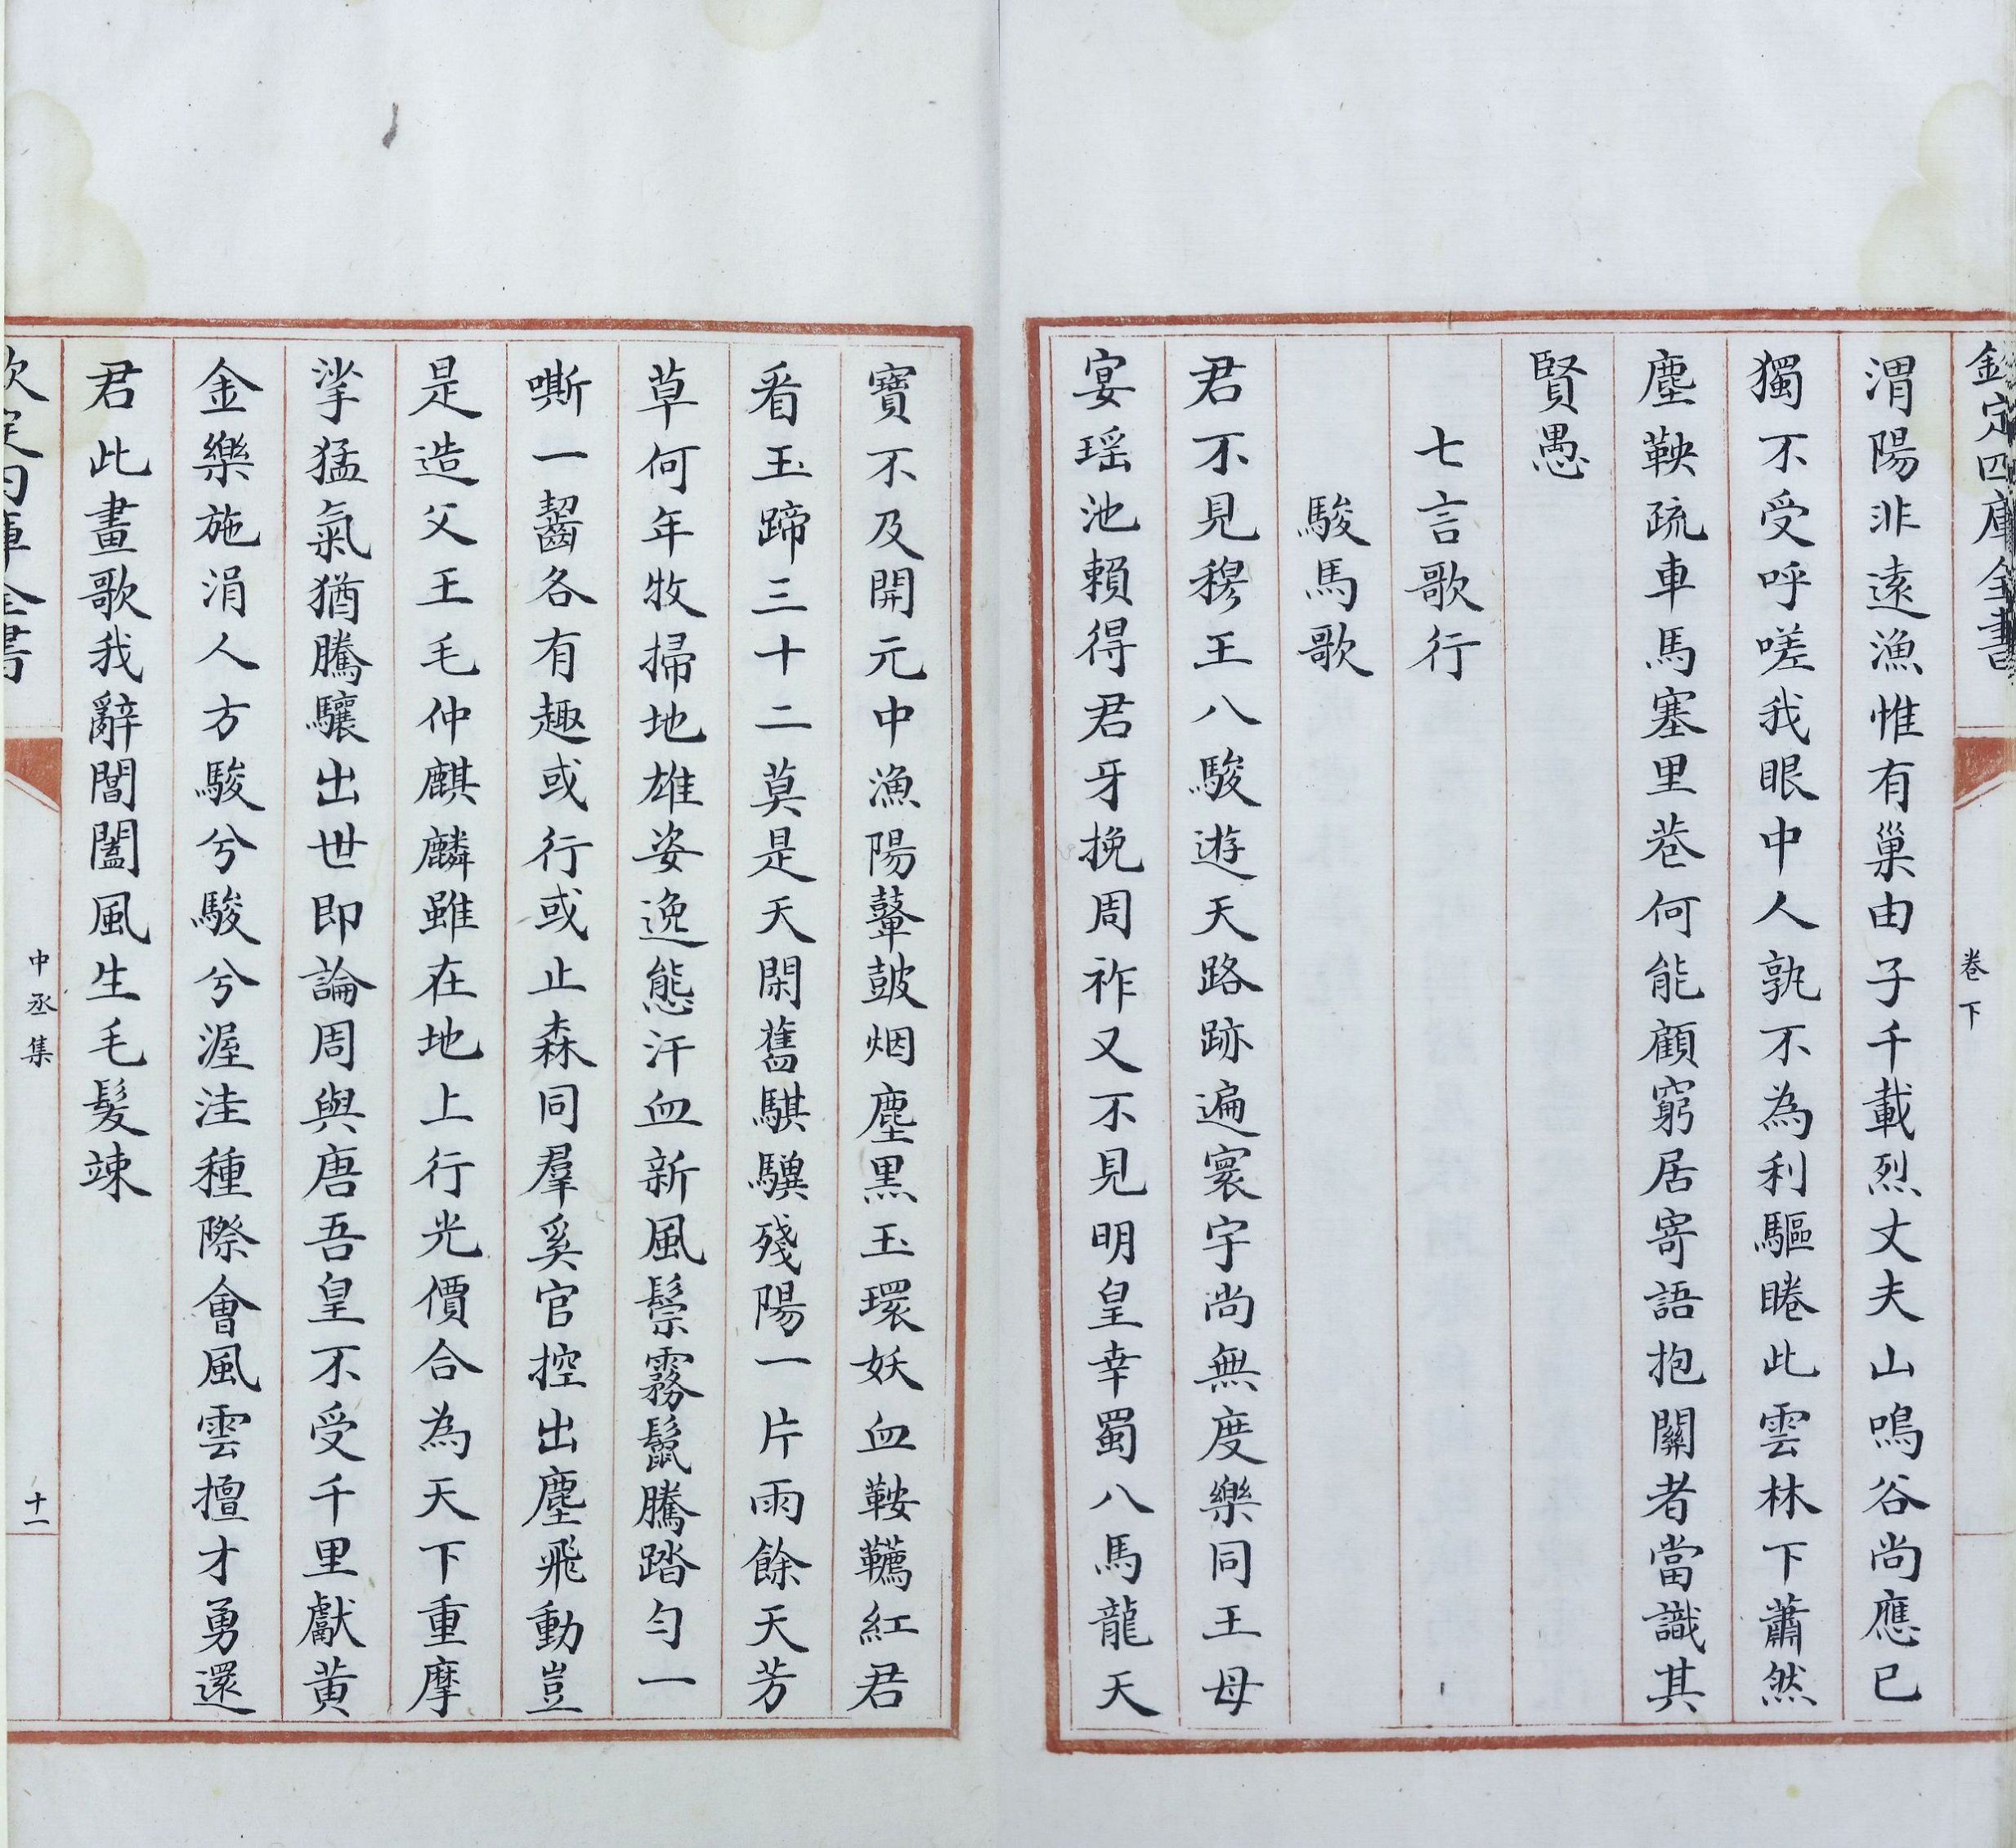 欽定四庫全書
卷下
渭陽非遠漁惟有巢由子千載烈丈夫山鳴谷尚應已
獨不受呼嗟我眼中人孰不為利驅睠此雲林下蕭然
塵鞅疏車馬塞里巷何能顧窮居寄語抱關者當識其
賢愚
七言歌行
駿馬歌
君不見穆王八駿遊天路跡遍寰宇尚無度樂同王母
宴瑶池賴得君牙挽周祚又不見明皇幸蜀八馬龍天
寶不及開元中漁陽鼙鼓烟塵黑玉環妖血鞍韉紅君
看玉蹄三十二莫是天閑舊騏驥殘陽一片雨餘天芳
草何年牧掃地雄姿逸態汗血新風鬃霧鬣騰踏勻一
嘶一齧各有趣或行或止森同羣奚官控出塵飛動豈
是造父王毛仲麒麟雖在地上行光價合為天下重摩
挲猛氣猶騰驤出世即論周與唐吾皇不受千里獻黄
金樂施涓人方駿兮駿兮渥洼種際會風雲擅才勇還
君此畫歌我辭閶闔風生毛髮竦
欽定四庫全書
中丞集
十一